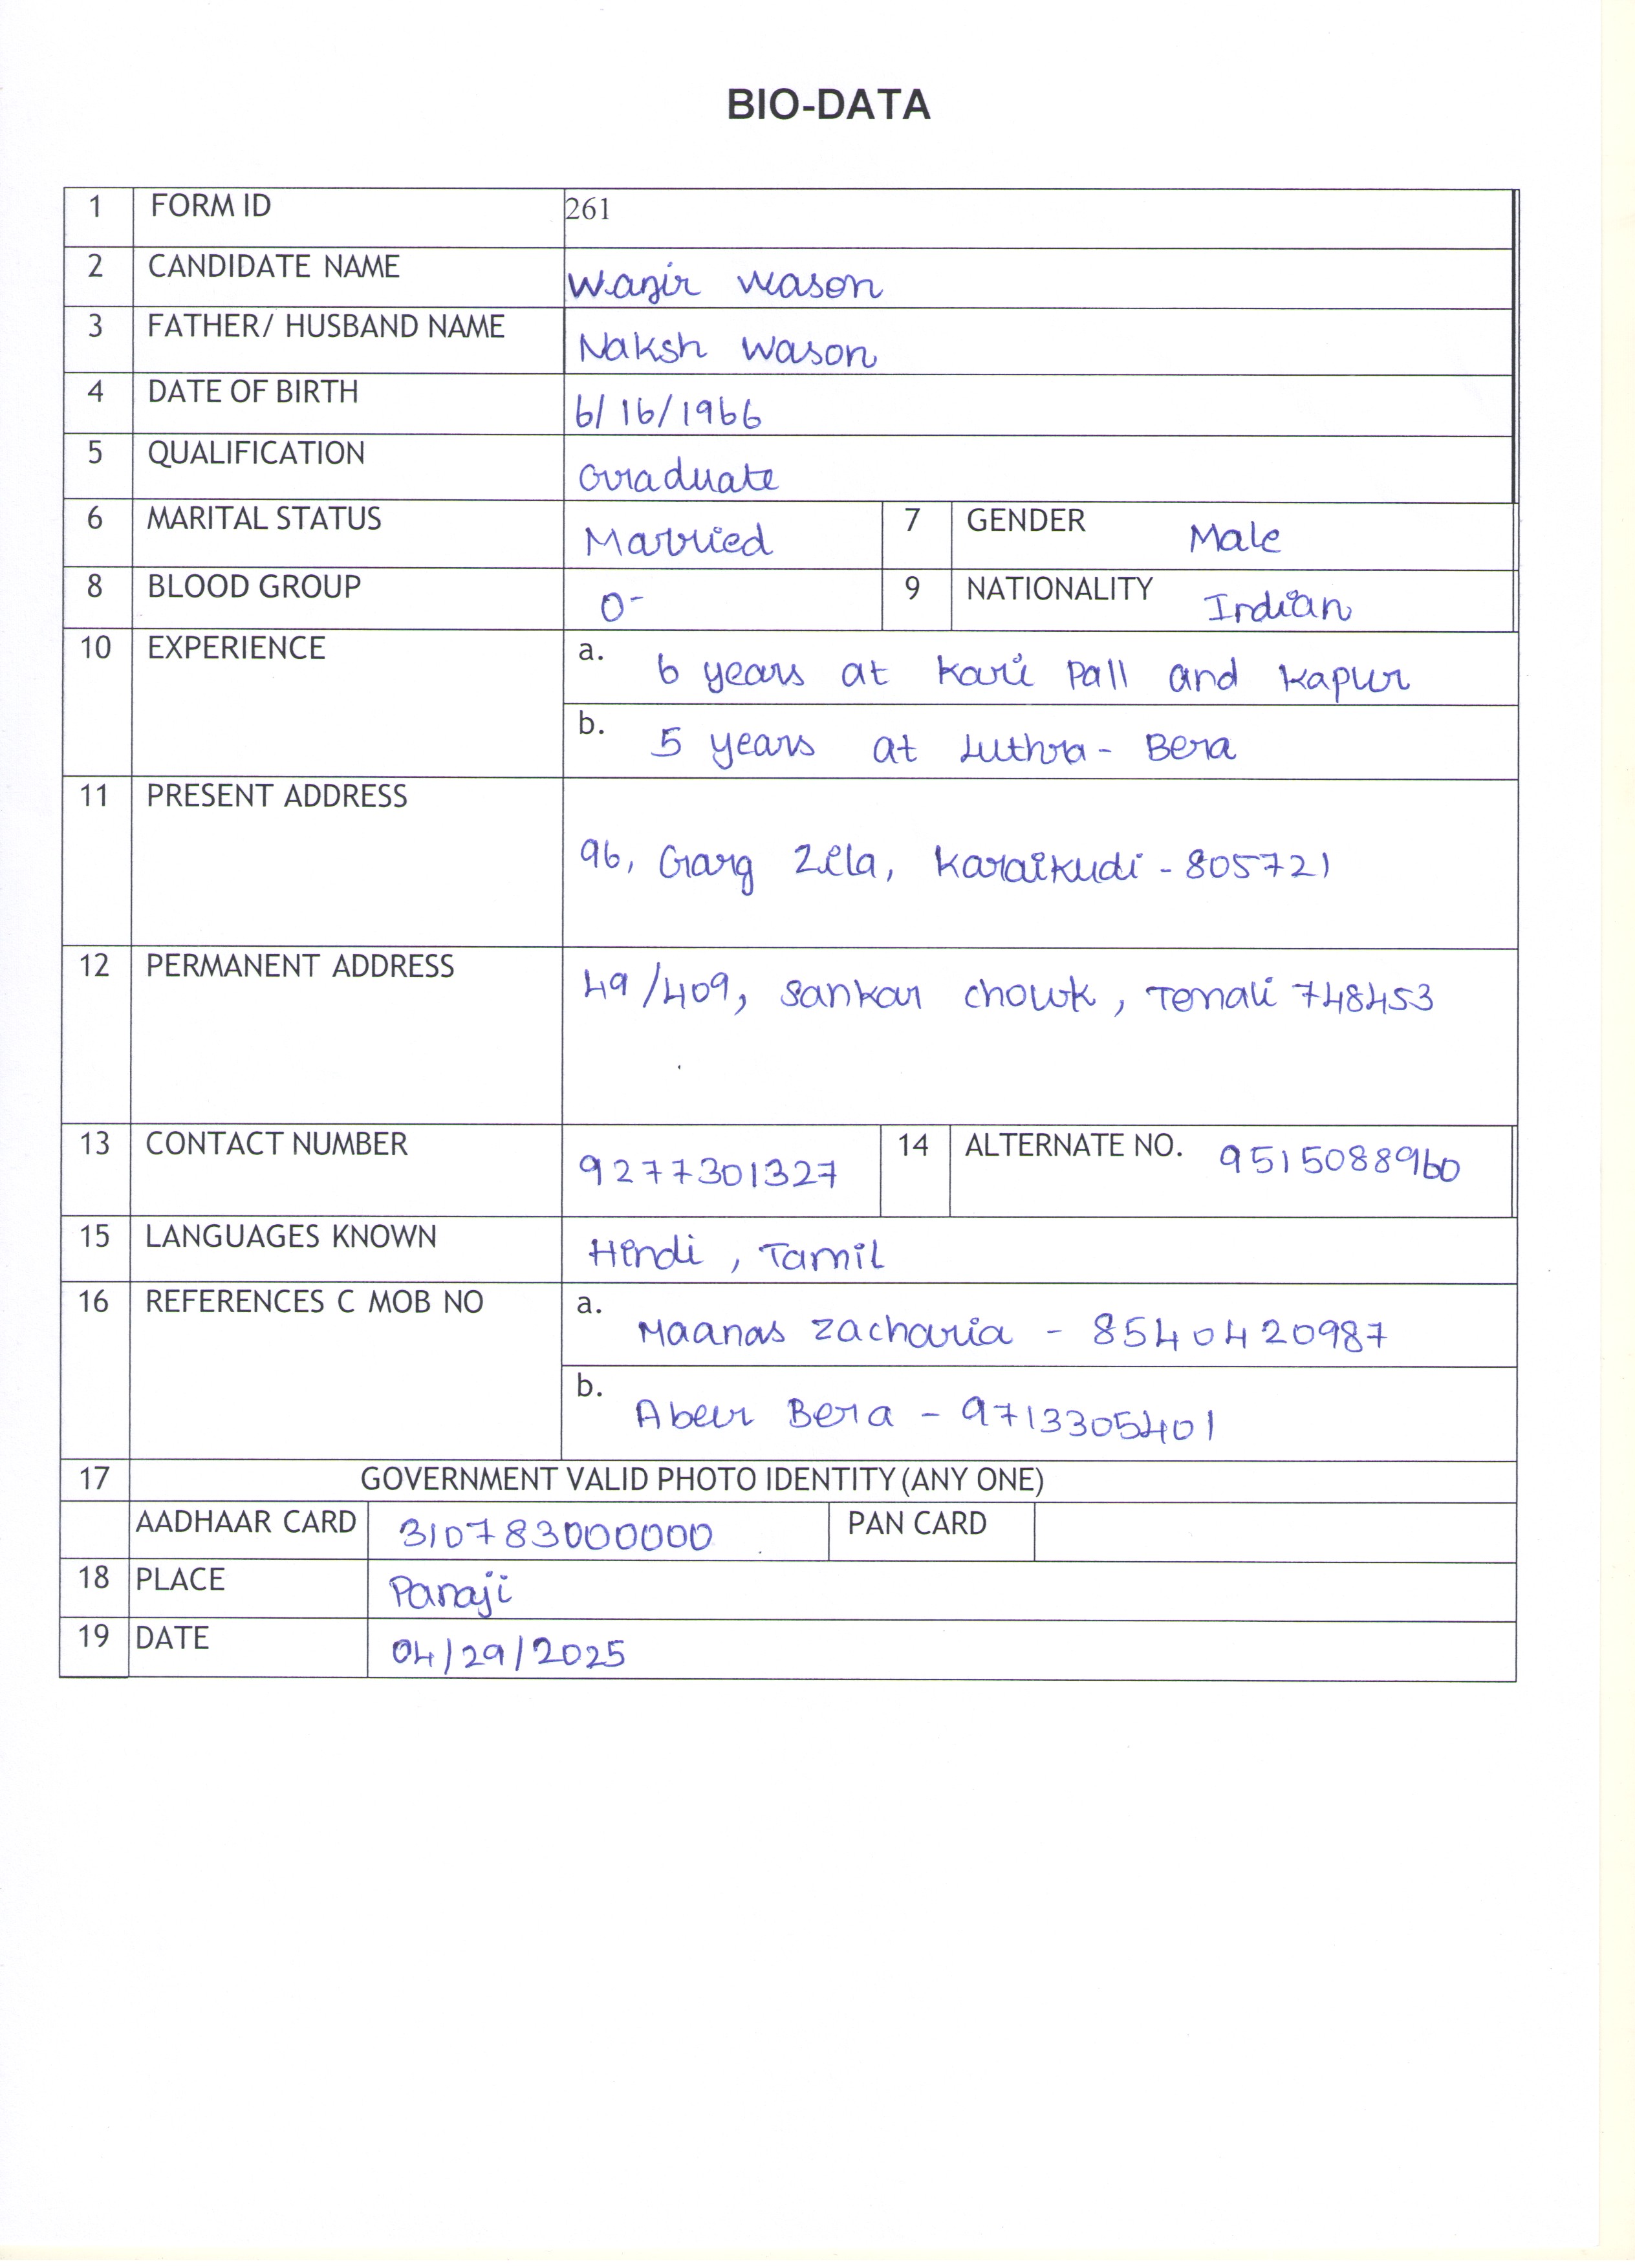 BIO-DATA
1 FORM ID 261
2 CANDIDATE NAME Wazir Wason
3 FATHER/ HUSBAND NAME Naksh Wason
4 DATE OF BIRTH 6/16/1966
5 QUALIFICATION Graduate
6 MARITAL STATUS Married 7 GENDER Male
8 BLOOD GROUP O- 9 NATIONALITY Indian
10 EXPERIENCE a. 6 years at Kari Pall and Kapur
b. 5 years at Luthra - Bera
11 PRESENT ADDRESS
96, Garg Zila, Karaikudi - 805721
12 PERMANENT ADDRESS 49/409, Sankar Chowk, Tenali 748453
13 CONTACT NUMBER 9277301327 14 ALTERNATE NO. 9515088960
15 LANGUAGES KNOWN Hindi, Tamil
16 REFERENCES C MOB NO a. Maanas Zacharia - 8540420987
b. Abeer Bera - 9713305401
17 GOVERNMENT VALID PHOTO IDENTITY (ANY ONE)
AADHAAR CARD 310783000000 PAN CARD
18 PLACE Panaji
19 DATE 04/29/2025